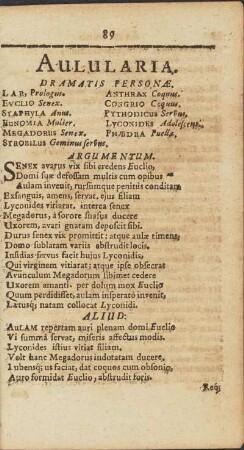 89
AULULARIA.
DRAMATIS PERSONÆ.
LAR, Prologus.
EUCLIO Senex.
STAPHYLA Anus.
EUNOMIA Mulier.
MEGADORUS Senex.
STROBILUS Geminus servus.
ANTHRAX Coquus.
CONGRIO Coquus.
PYTHODICUS Servus.
LYCONIDES Adolescens.
PHÆDRA Puella.
ARGUMENTUM.
SENEX avarus vix sibi credens Euclio,
Domi suæ defossam multis cum opibus
Aulam invenit, rursumque penitus conditam
Exsanguis, amens, servat, ejus filiam
Lyconides vitiarat, interea senex
Megadorus, à sorore suasus ducere
Uxorem, avari gnatam deposcit sibi.
Durus senex vix promittit: atque aulæ timens,
Domo sublatam variis abstrudit locis.
Insidias servus facit hujus Lyconidis,
Qui virginem vitiarat; atque ipse obsecrat
Avunculum Megadorum sibimet cedere
Uxorem amanti. per dolum mox Euclio
Quum perdidisset, aulam insperato invenit,
Lætusq; natam collocat Lyconidi.
ALIUD.
AULAM repertam auri plenam domi Euclio
Vi summa servat, miseris affectus modis.
Lyconides istius vitiat filiam.
Volt hanc Megadorus indotatam ducere,
Lubensq; ut faciat, dat coquos cum obsonio,
Auro formidat Euclio, abstrudit foris.
Req;